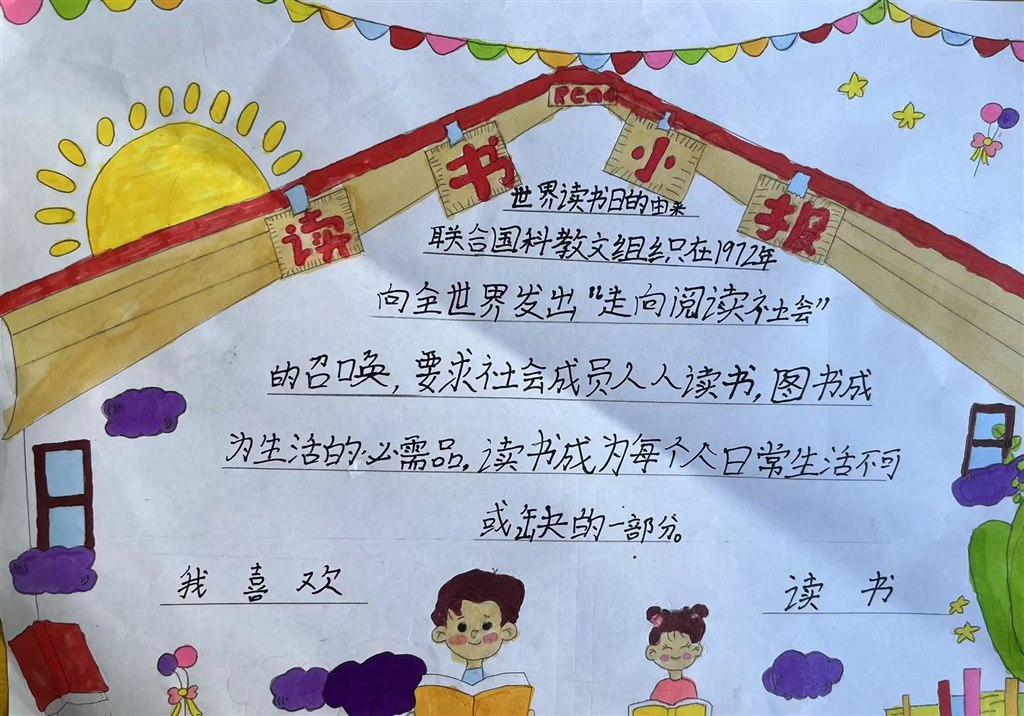 Read
读书小报
世界读书日的由来
联合国科教文组织在1972年
向全世界发出“走向阅读社会”
的召唤,要求社会成员人人读书,图书成
为生活的必需品,读书成为每个人日常生活不可
或缺的一部分。
我喜欢 读书